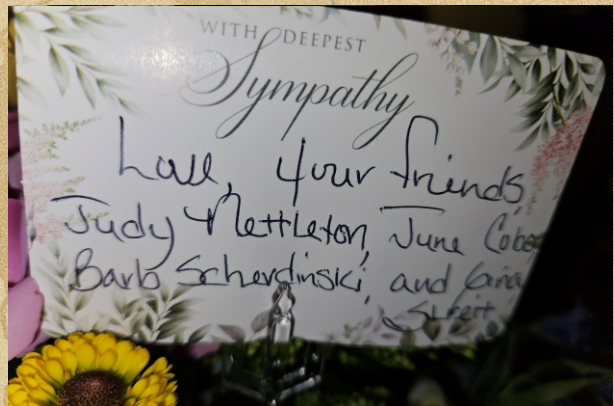 WITH DEEPEST
Sympathy
Love, your friends,
Judy Nettleton, June
Barb Scherdinski, and Gina
Streit